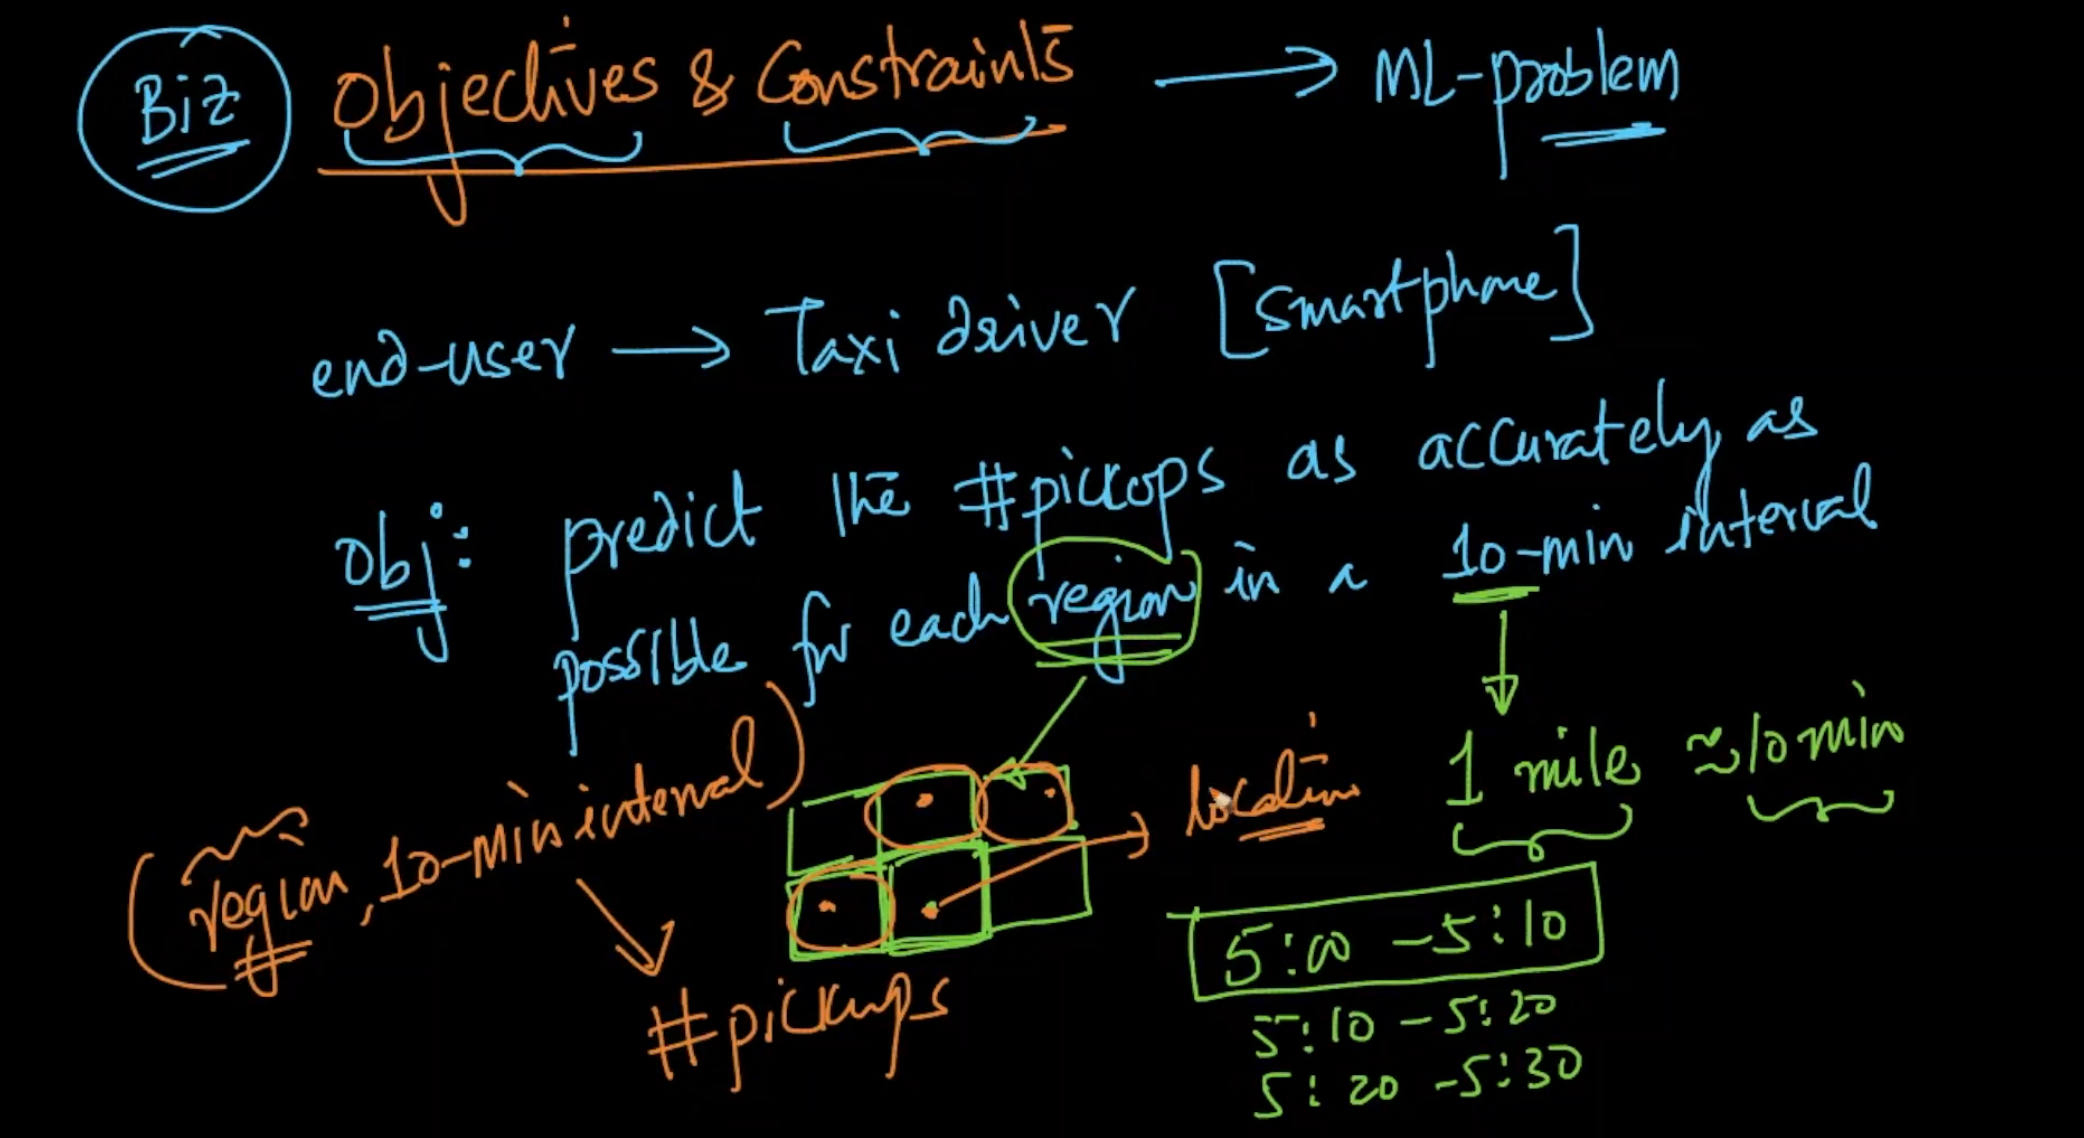 Biz Objectives & Constraints → ML-problem
end-user → Taxi driver [smartphone]
obj: predict the #pickups as accurately as
possible for each region in a 10-min interval
1 mile ≈ 10 min
(region, 10-min interval)
location
5:00 - 5:10
5:10 - 5:20
5:20 - 5:30
#pickups